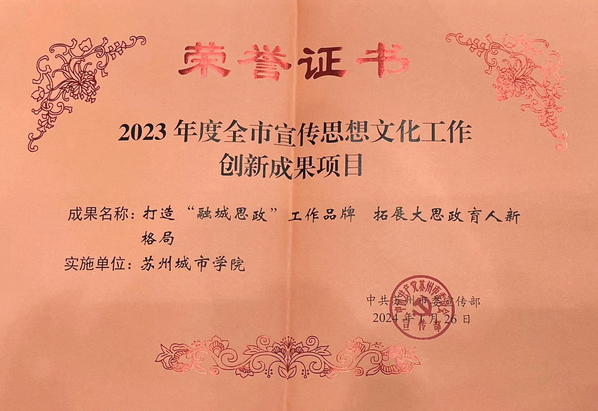 荣誉证书
2023年度全市宣传思想文化工作
创新成果项目
成果名称：打造“融城思政”工作品牌 拓展大思政育人新
格局
实施单位：苏州城市学院
中共苏州市委宣传部
2024年1月26日